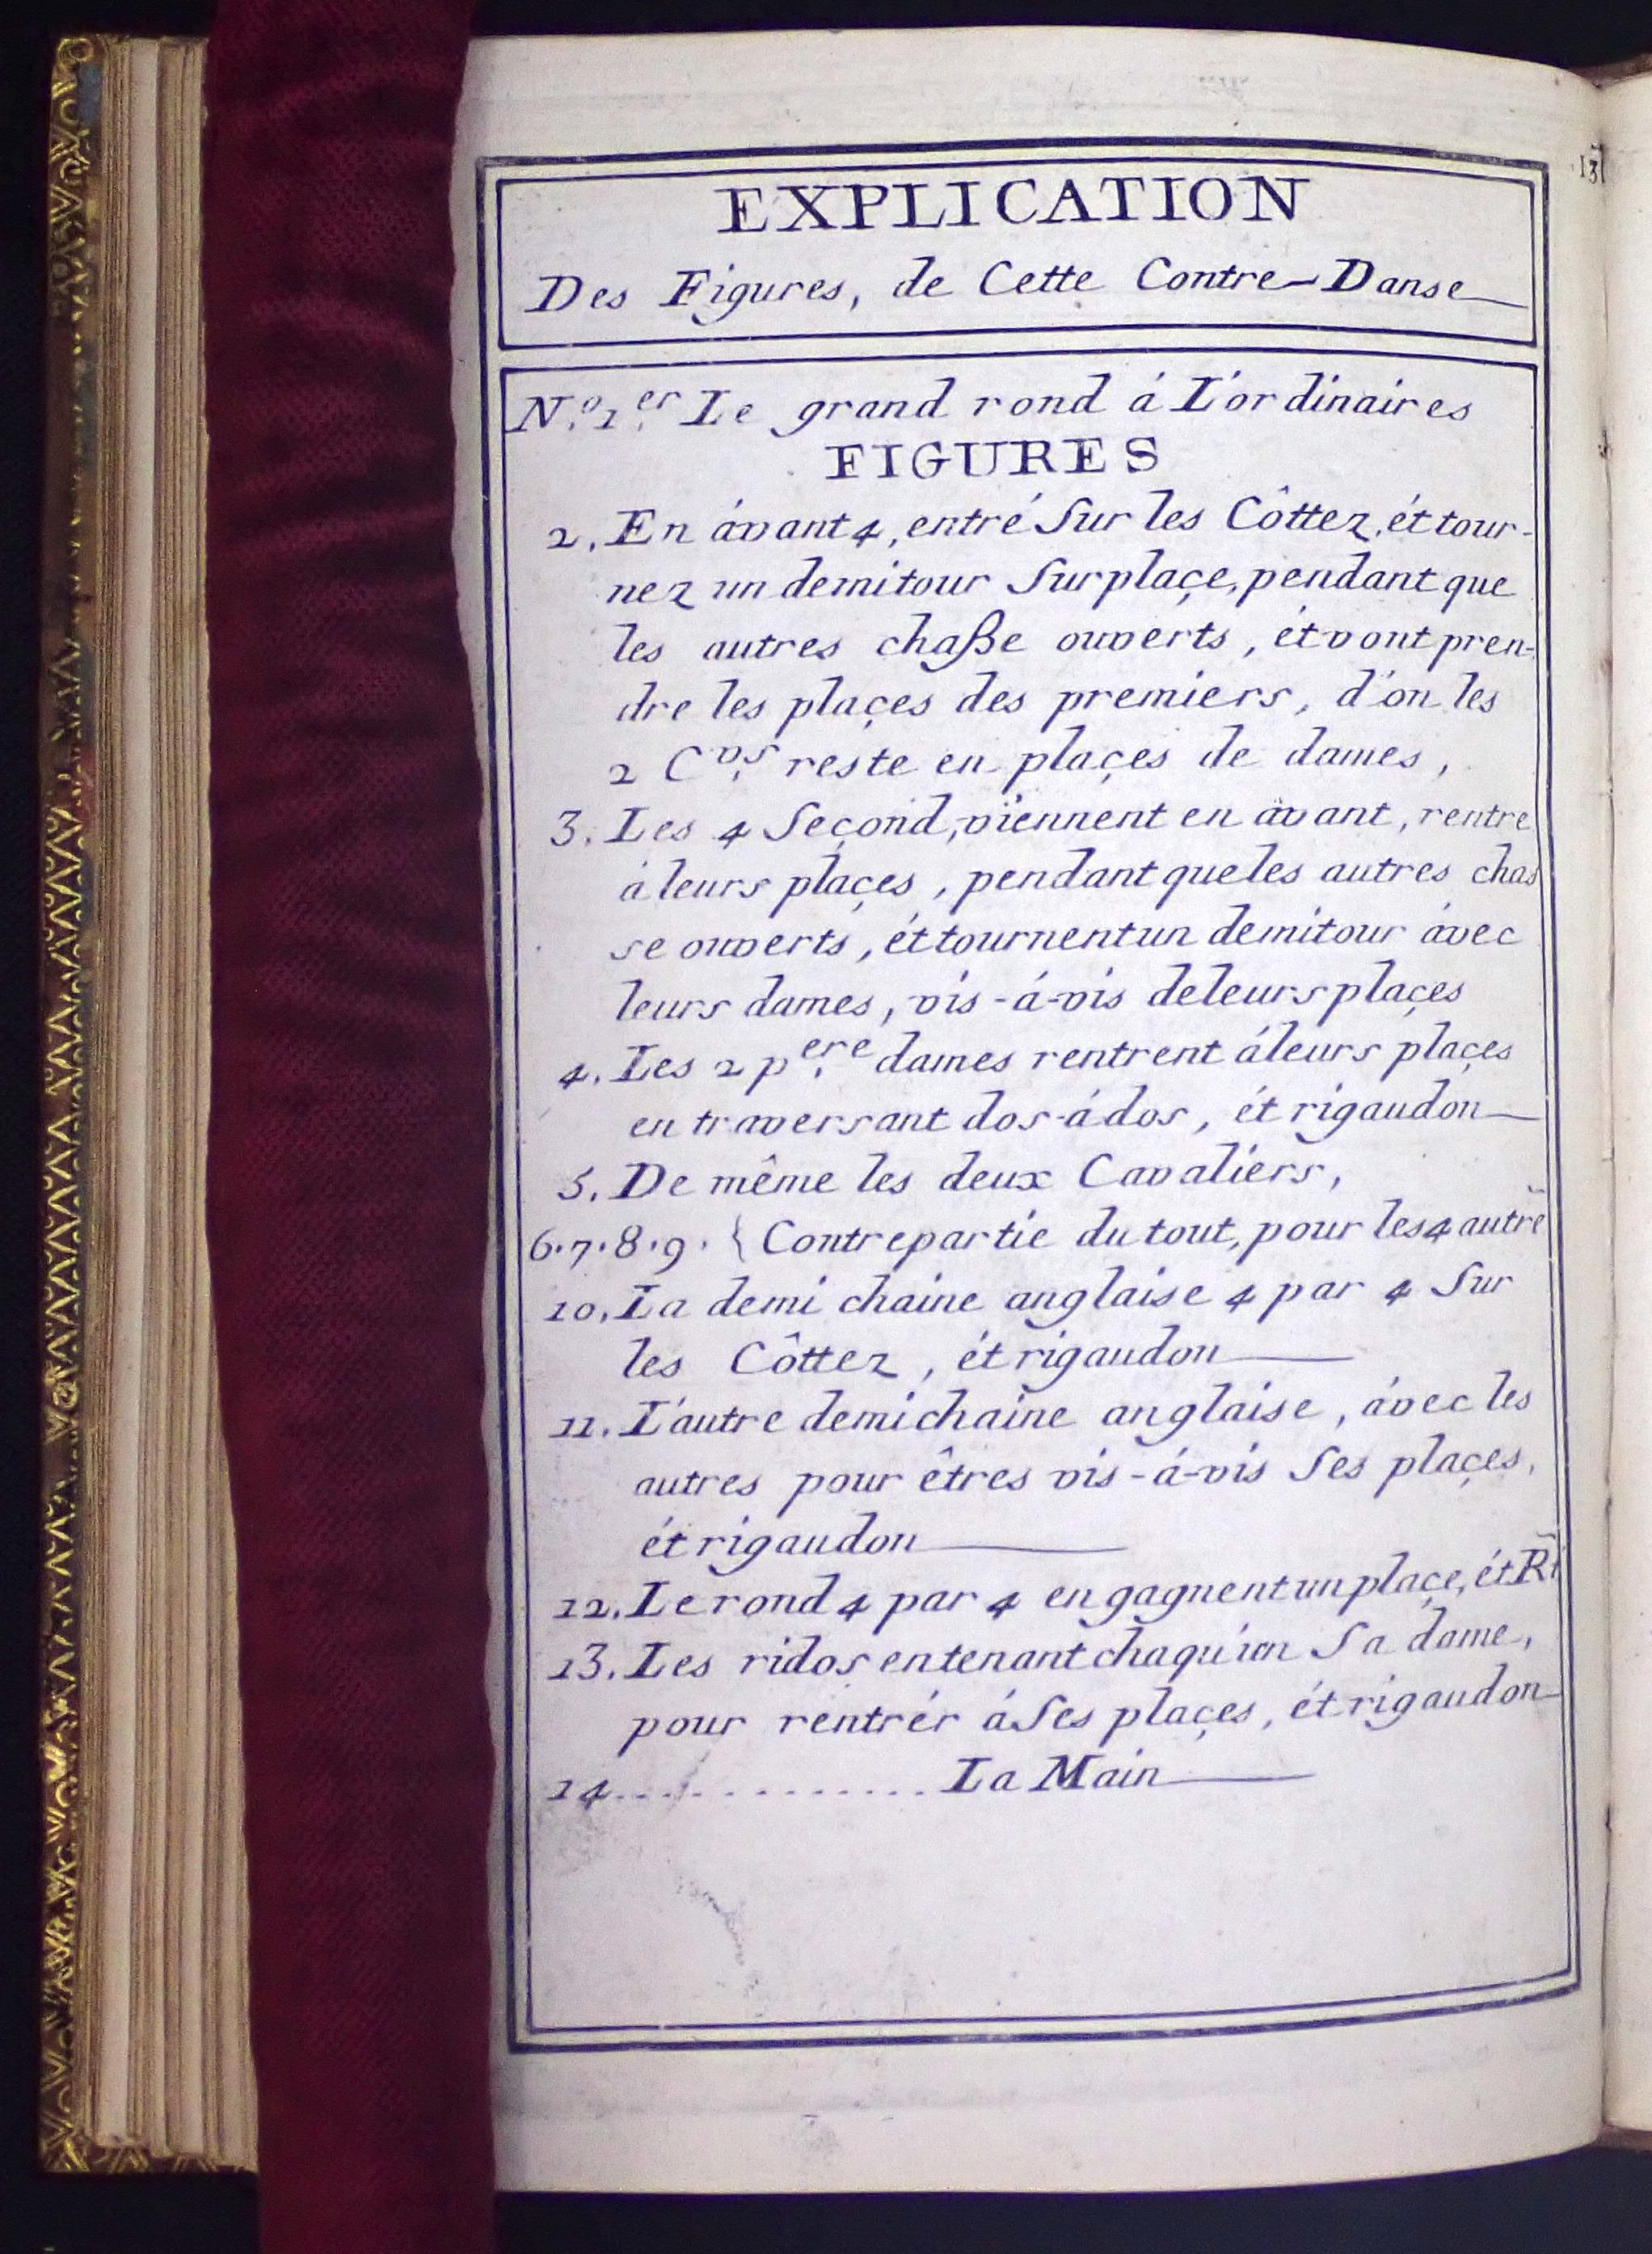 13
EXPLICATION
Des Figures, de Cette Contre-Danse
N.º 1.er Le grand rond á L'ordinaires
FIGURES
2. En ávant 4, entré Sur les Côttez, ét tour-
nez un demitour Sur plaçe, pendant que
les autres chaße ouverts, ét vont pren-
dre les plaçes des premiers, d'on les
2 C.vs reste en plaçes de dames,
3. Les 4 Seçond, viennent en ávant, rentre
á leurs plaçes, pendant que les autres chas
se ouverts, ét tournent un demitour ávec
leurs dames, vis-á-vis de leurs plaçes
4. Les 2 p.ere dames rentrent á leurs plaçes
en traversant dos-á dos, ét rigaudon
5. De même les deux Cavaliers,
6.7.8.9. { Contrepartie du tout, pour les 4 autre
10. La demi chaine anglaise 4 par 4 Sur
les Côttez, ét rigaudon
11. L'autre demi chaine anglaise, ávec les
autres pour êtres vis-á-vis Ses plaçes,
ét rigaudon
12. Le rond 4 par 4 en gagnent un plaçe, ét R
13. Les ridos en tenant chaqu'un Sa dame,
pour rentrér á Ses plaçes, ét rigaudon
14.............La Main